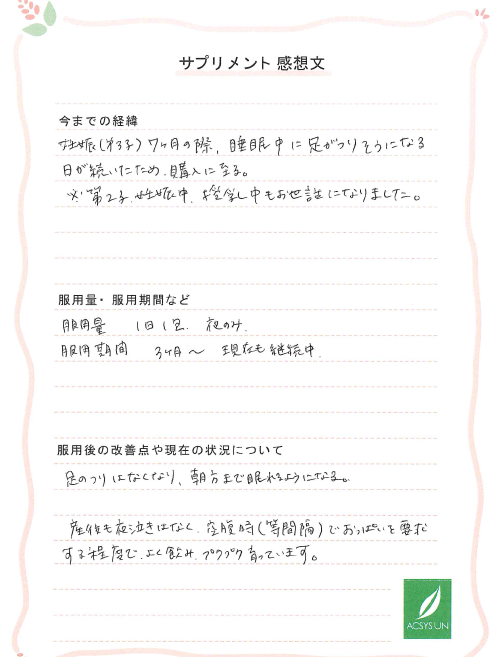 サプリメント 感想文
今までの経緯
妊娠(第3子)7ヶ月の際、睡眠中に足がつりそうになる
日が続いたため、購入に至る。
※第2子、妊娠中、授乳中もお世話になりました。
服用量・服用期間など
服用量 1日1包、夜のみ、
服用期間 3ヶ月〜 現在も継続中、
服用後の改善点や現在の状況について
足のつりはなくなり、朝方まで眠れるようになる。
産後も夜泣きはなく、空腹時(等間隔)でおっぱいを要求
する程度で、よく飲み、プクプク育っています。
ACSYS UN